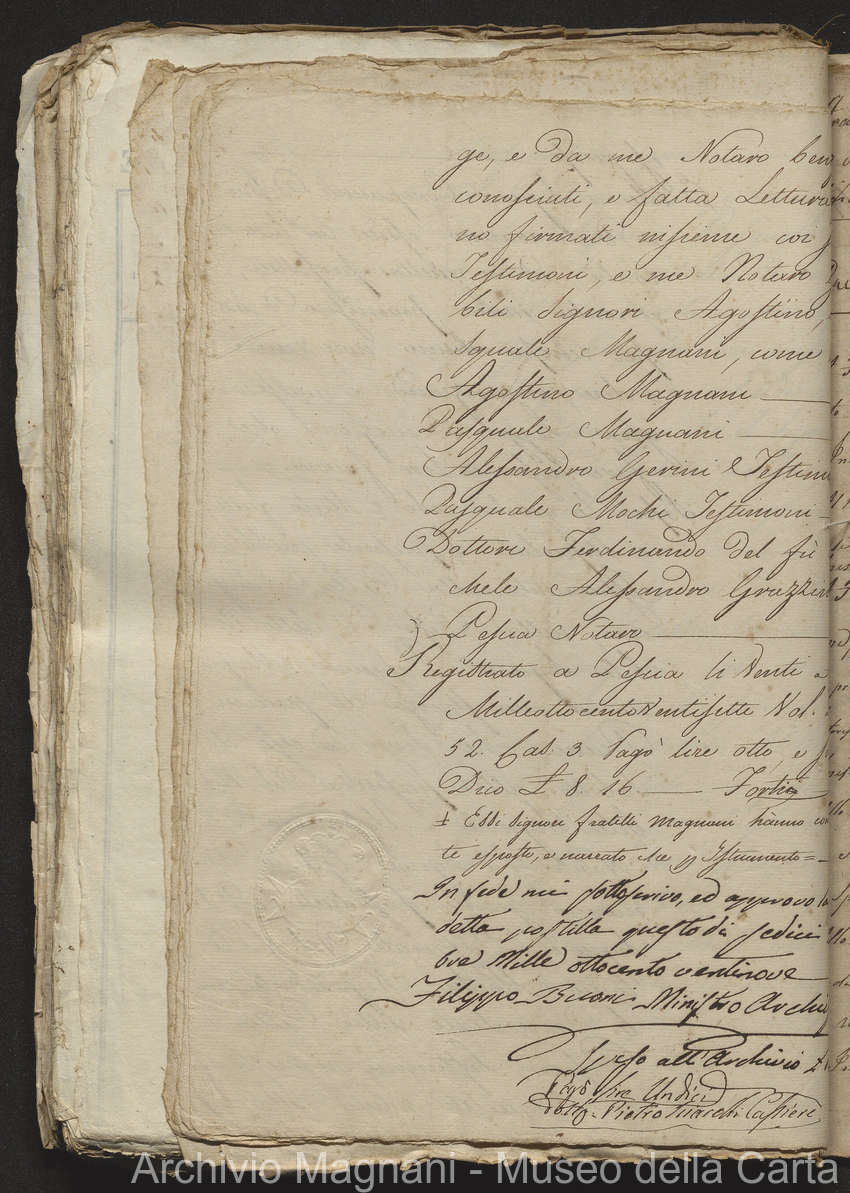 ge, e da me Notaro ben
conosciuti, e fatta Lettura
no firmati insieme coi
Testimoni, e me Notaro
bili Signori Agostino,
squale Magnani, come
Agostino Magnani
Pasquale Magnani
Alessandro Gerini Testim
Pasquale Mochi Testimoni
Dottore Ferdinando del fù
chele Alessandro Grazzin
Pescia Notaro
Registrato a Pescia li Venti
Milleottocentoventisette Vol.
52. Cas. 3. Pagò lire otto, e
Dico £ 8. 16.
‡ Essi Signori fratelli Magnani hanno
te esposto, e narrato
In fede mi sottoscrivo, ed approvo la
detta postilla questo dì sedici
bre Mille ottocento ventinove
Filippo Ministro Archi
all'Archivio
Pagò lire Undici
Pietro Cassiere
Archivio Magnani - Museo della Carta